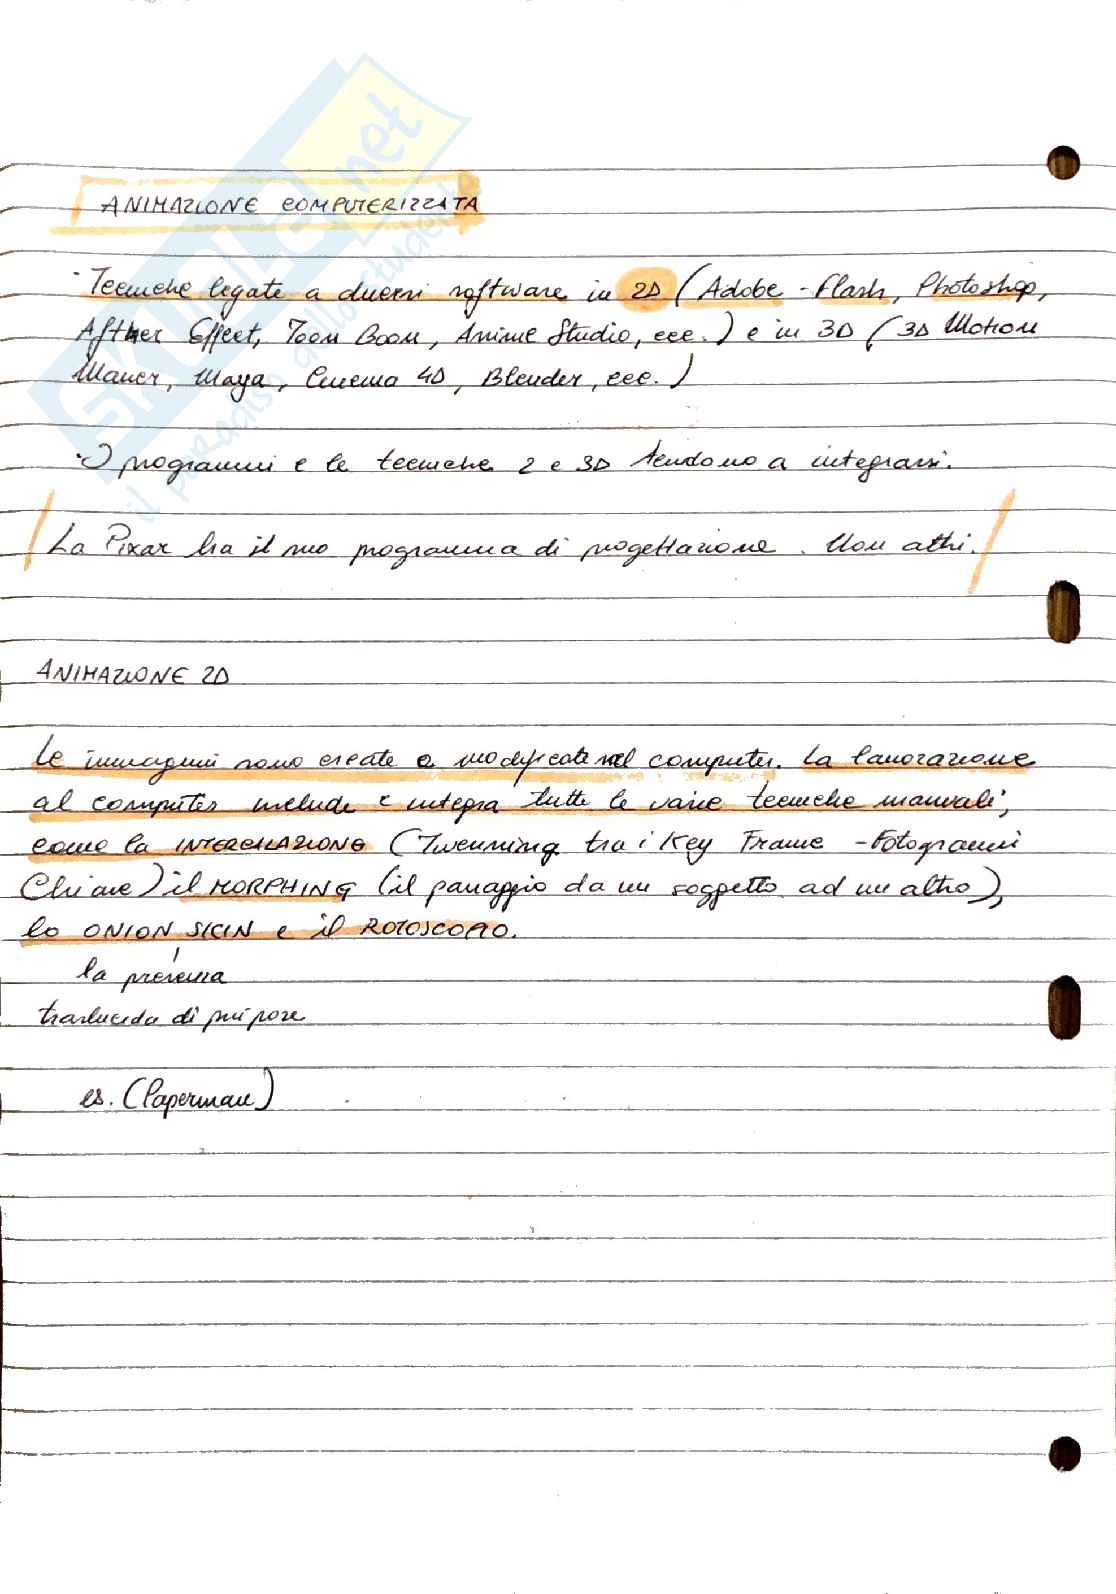 SKUOLA.net
il paradiso dello studente
ANIMAZIONE COMPUTERIZZATA
· Tecniche legate a diversi software in 2D (Adobe - Flash, Photoshop,
Afther Effect, Toon Boom, Anime Studio, ecc.) e in 3D (3D Motion
Maner, Maya, Cinema 4D, Blender, ecc.)
· I programmi e le tecniche 2 e 3D tendono a integrarsi.
La Pixar ha il suo programma di progettazione. Non altri.
ANIMAZIONE 2D
Le immagini sono create e modificate nel computer. La lavorazione
al computer include e integra tutte le varie tecniche manuali,
come la (Tweenning tra i Key Frame - Fotogrammi
Chiave) il MORPHING (il passaggio da un soggetto ad un altro),
lo ONION SKIN e il ROTOSCOPIO.
la presenza
traslucida di più pose
es. (Paperman)